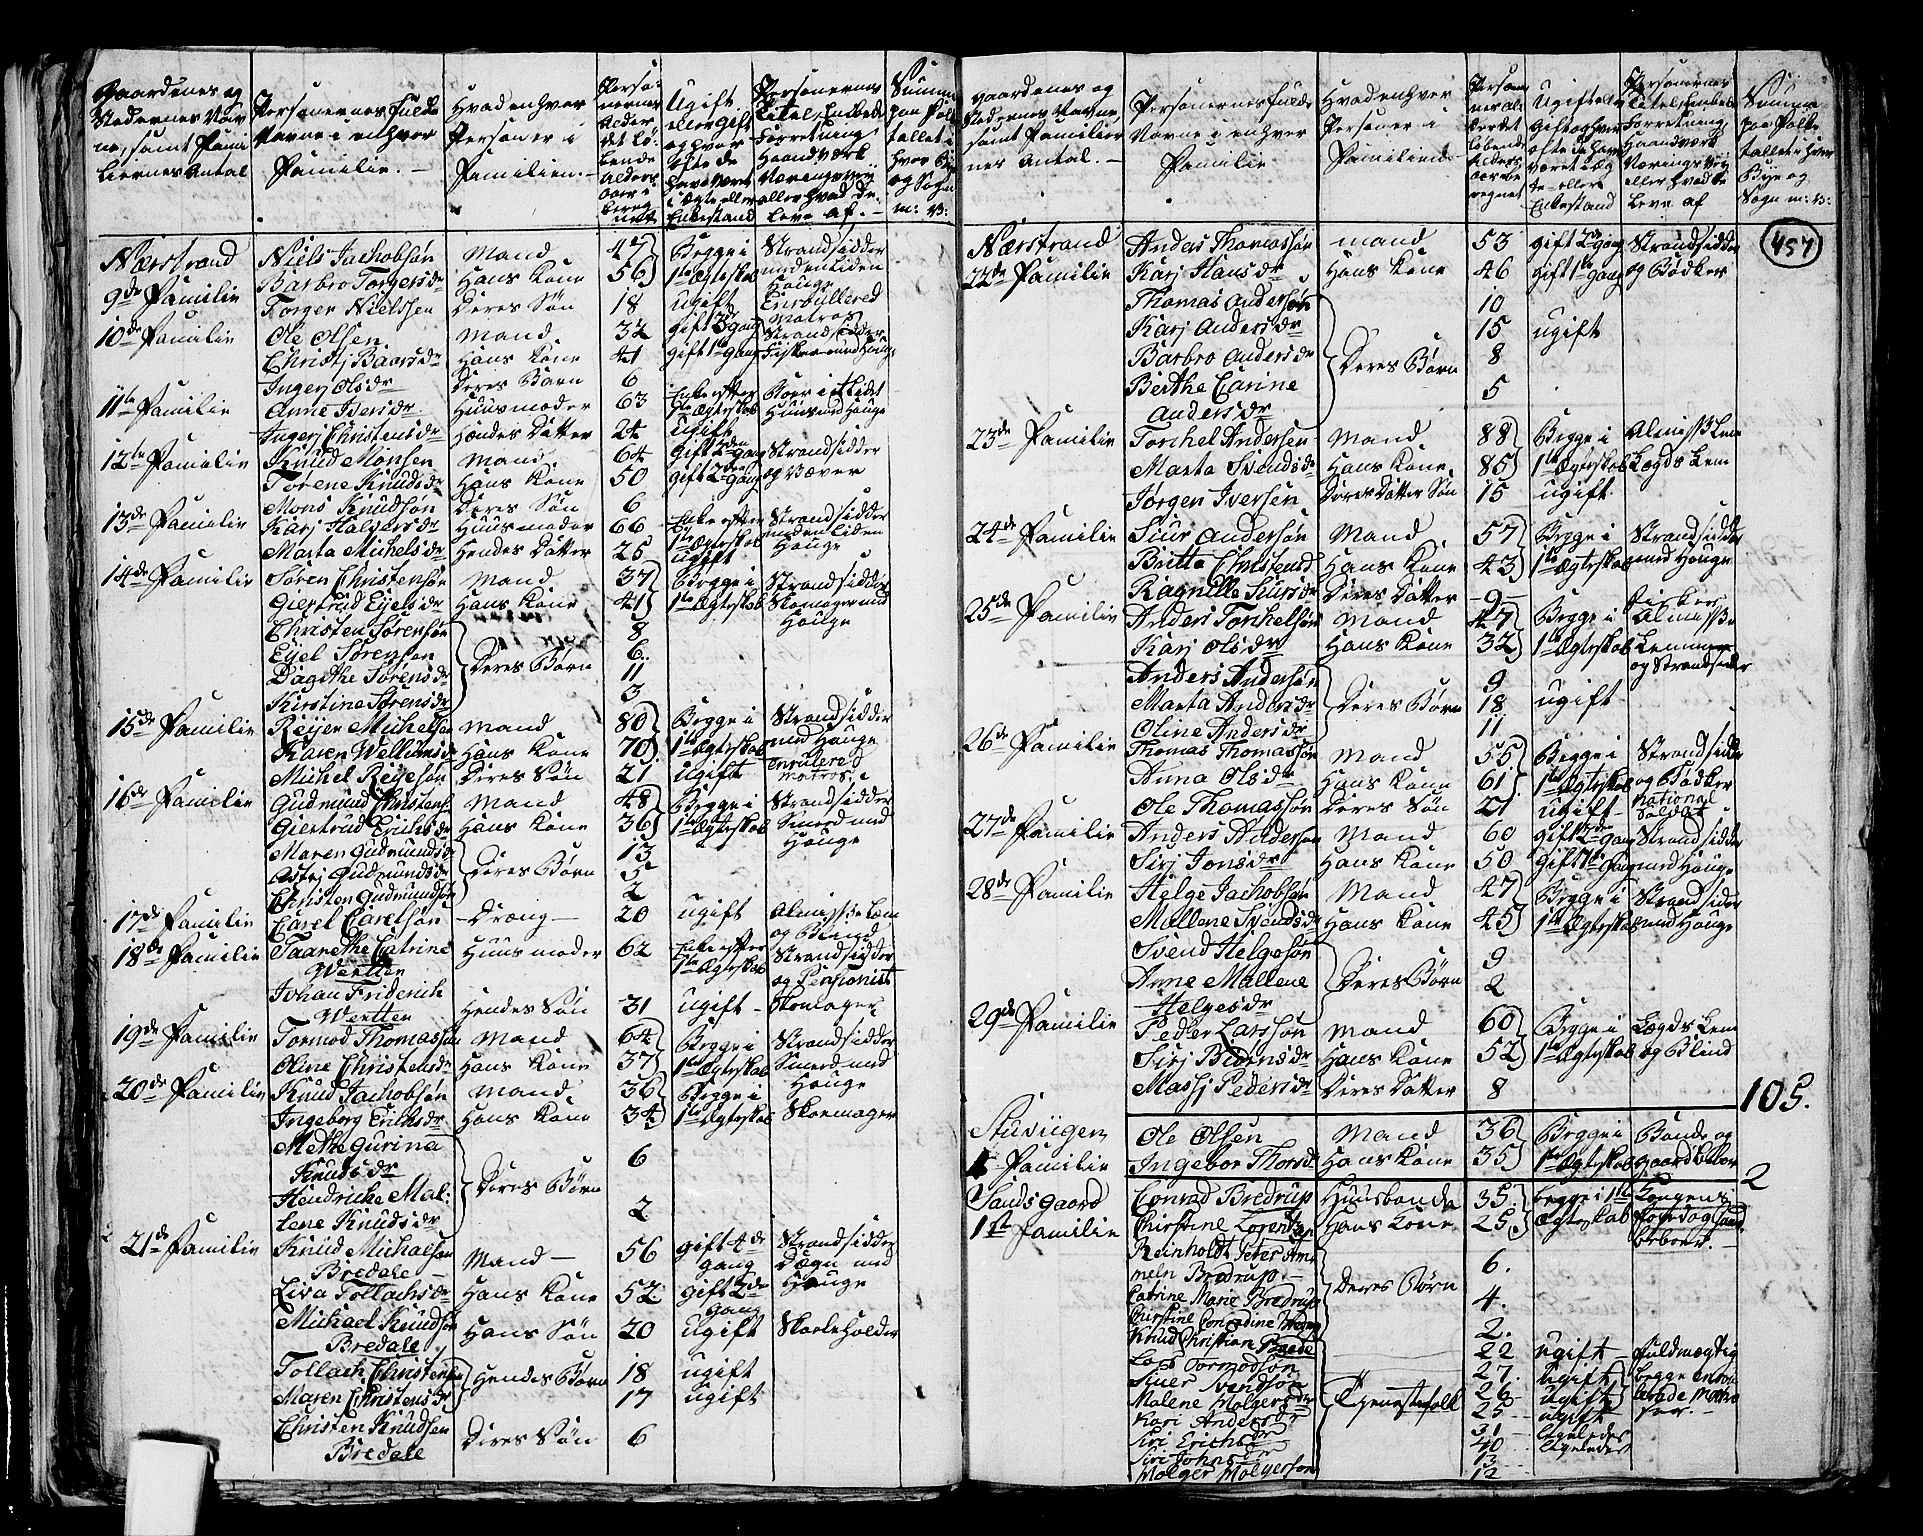 Gaardenes og Stedernes Navne, samt Familiernes Antal
Personernes Fulde Navne i enhver Familie. —
Hvad enhver Person er i Familien. —
Personernes Alder det løbende Alders aar iberegnet
Ugift eller Gift og hvor ofte de have været i Ægte eller Enkestand
Personernes Titel, Embede Forretning Haandværk Næringsvej eller hvad de leve af. —
Summa paa Folketallet i hver Bÿe og Sogn
Nærstrand Niels Jachobsøn Mand 47 Begge i Strandsidder
9de Familie Barbro Torgersdr Hans Kone 56 1te Ægteskab med en liden Houge
Torger Nielssen Deres Søn 18 ugift Enrullered Matros
10de Familie Ole Olsen Mand 32 gift 3de gang Strandsidder
Christj Baarsdr Hans Kone 41 gift 1te gang Fisker med Houge
Ingerj Olsdr Deres Barn 6
11te Familie Anne Iversdr Huusmoder 63 Enke efter 1te Ægteskab
Ingerj Christensdr Hendes Datter 24 ugift
12te Familie Knud Monsen Mand 64 Gift 3de gang Strandsidder
Torene Knudsdr Hans Kone 50 gift 2de gang og Væver
Mons Knudsøn Deres Søn 6
13de Familie Karj Halvorsdr Huusmoder 66 Enke efter 1te Ægteskab Strandsidder med en liden Houge
Marta Michelsdr Hendes Datter 26 ugift
14de Familie Søren Christensøn Mand 37 Begge i Strandsidder
Giertrud Eyelsdr Hans Kone 41 1te Ægteskab Skomager med Houge
Christen Sørensøn 8
Eyel Sørensøn Deres Børn 6
Dagithe Sørensdr 11
Kirstine Sørensdr 3
15de Familie Reyer Michelsen Mand 80 Begge i Strandsidder
Karen Wellumsdr Hans Kone 70 1te Ægteskab med Houge
Michel Reyersøn Deres Søn 21 ugift Enrulered matros
16de Familie Gudmund Christens. Mand 48 Begge i Strandsidder
Giertrud Erichsdr Hans Kone 36 1te Ægteskab Smed med Houge
Maren Gudmundsdr 13
Astrj Gudmundsdr Deres Børn 5
Christen Gudmundsøn 2
17de Familie Carel Carelsøn — Dreng — 20 ugift Almisse Lem og Blind
18de Familie Taarethe Catrine Huusmoder 62 Enke efter Strandsidder
Wertten 1te Ægteskab og Pensionist
Johan Friderich Hendes Søn 31 ugift — Skomager
Wertten
19de Familie Tormod Thomassøn Mand 64 Begge i Strandsidder
Oline Christensdr Hans Kone 37 1te Ægteskab Smed med Houge
20de Familie Knud Jachobsøn Mand 36 Begge i
Ingeborg Erichsdr Hans Kone 34 1te Ægteskab Skoemager
Methe Gurina 6
Knudsdr Deres Børn
Hendriche Mal-
lene Knudsdr 2
21de Familie Knud Michaelsen Mand — 56 gift 4de gang Strandsidder
Bredale —
Lisa Tollachsdr Hans Kone 52 gift 2de gang Houge
Michael Knudsøn Hans Søn 20 ugift Skoleholder
Bredale
Tollach Christensen Hendes Børn 18 ugift
Maren Christensdr 17 ugift
Christen Knudsen Deres Søn 6
Bredale
Gaardenes og Stedernes Navne, samt Familiernes Antal. —
Personernes fulde Navne i enhver Familie
Hvad enhver Person er i Familien. —
Personernes Alder det løbende Alders aar iberegnet
Ugift eller Gift og hvor ofte de have været i Ægte- eller Enkestand
Personernes Titel, Embede Forretning, Haandværk Næringsvej eller hvad de leve af
Summa paa Folketallet i hver Bye og Sogn
457
Nærstrand Anders Thomassøn Mand 53 gift 2de gang Strandsidder
22de Familie Karj Hansdr Hans Kone 46 gift 1te gang og Bødker
Thomas Andersøn 10
Karj Andersdr 15 ugift
Barbro Andersdr Deres Børn 8
Berthe Carine 5
Andersdr
23de Familie Torchel Andersen Mand 88 Begge i Almisse Lem
Marta Svendsdr Hans Kone 85 1te Ægteskab Lægds Lem
Jørgen Iversen Deres Datter Søn 15 ugift
24de Familie Siur Andersøn Mand 57 Begge i Strandsidder
Britta Christensd Hans Kone 43 1te Ægteskab med Houge
Ragnille Siursdr Deres Datter 9
25de Familie Anders Torchelsøn Mand 47 Begge i Fisker Almisse
Karj Olsdr Hans Kone 32 1te Ægteskab Lemmer og Strandsider
Anders Andersøn 9
Marta Andersdr Deres Børn 18 ugift
Oline Andersdr 11
26de Familie Thomas Thomassøn Mand 55 Begge i Strandsidder
Anna Olsdr Hans Kone 61 1te Ægteskab og Bødker
Ole Thomassøn Deres Søn 21 ugift National Soldat
27de Familie Anders Andersøn Mand 60 gift 3de gang Strandsidder
Sirj Jonsdr Hans Kone 50 Gift 1te Gang med Houge
28de Familie Helge Jachobsøn Mand 47 Begge i Strandsider
Mallene Svendsdr Hans Kone 45 1te Ægteskab med Houge
Svend Helgesøn 9
Anne Mallene Deres Børn 2
Helgesdr
29de Familie Peder Larssøn Mand 60 Begge i Lægds Lem
Sirj Biørnsdr Hans Kone 52 1te Ægteskab og Blind
Massj Pedersdr Deres Datter 8
105.
Ole Olsen Mand 36 Begge i Bonde og
1te Familie Ingebor Thorsd Hans Kone 35 1te Ægteskab Gaardbeboer
2
Sandsgaard Conrad Bredrup Huusbonde 35 begge i 1te Kongens
1te Familie Chirstine Lorentzen Hans Kone 25 Ægteskab Foged og Sands. beboer. —
Reinholdt Peter Am- 6.
meln Bredrup. — Deres Børn
Catrine Marie Bredrup 4.
Chirstine Conradine 2.
Knud Christian 22 ugift — Fuldmægtig
Lars Tormodsøn 27 Ugift begge enroul-
Siver Svendsøn 26 ugift lerede Matro-
Malene Molgersdr Tjenestefolk 25 ugift ser. —
Kari Andersdr 31 ligeledes
Siri Erichsdr 40 ligeledes
Siri Johnsdr 13
Molger Molgersøn 12